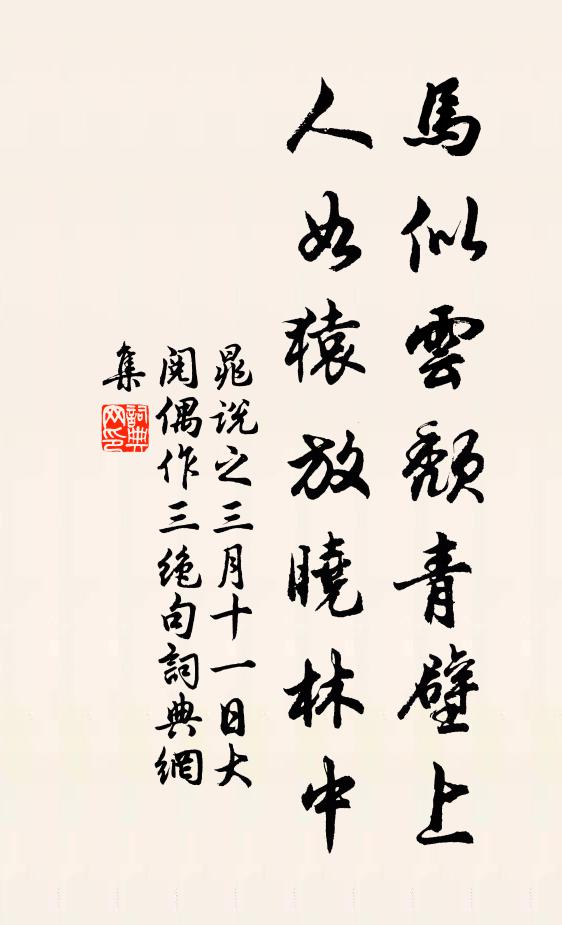 馬似雲頹青壁上
人如猿放曉林中
晁說之三月十一日大
閱偶作三絶句詞典網
集
詞典
网印